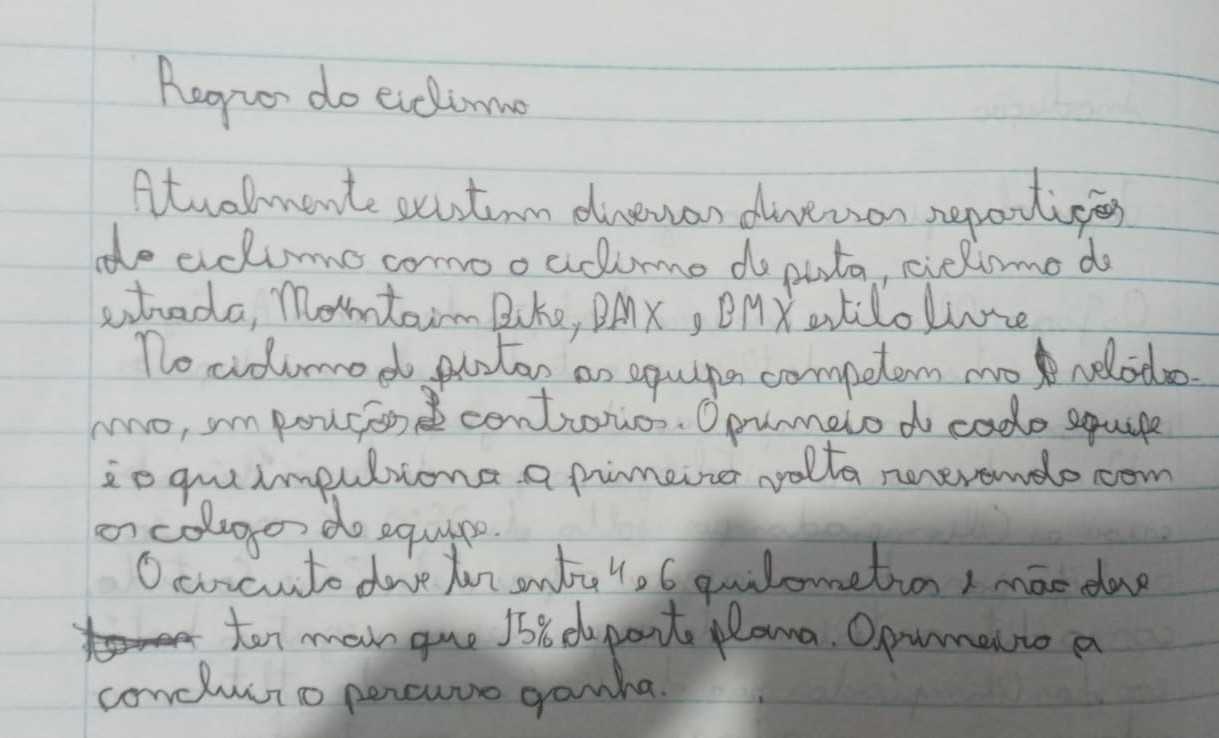 Regras do ciclismo
Atualmente existem diversas diversas repartições
do ciclismo como o ciclismo de pista, ciclismo de
estrada, Mountain Bike, BMX e BMX estilo livre
No ciclismo de pistas as equipes competem no velódro-
mo, em posições contrarios. O primeiro de cada equipe
é o que impulsiona a primeira volta revesando com
os colegas de equipe.
O circuito deve ter entre 4 e 6 quilometros e não deve
ter mais que 15% de parte plana. O primeiro a
concluir o percurso ganha.